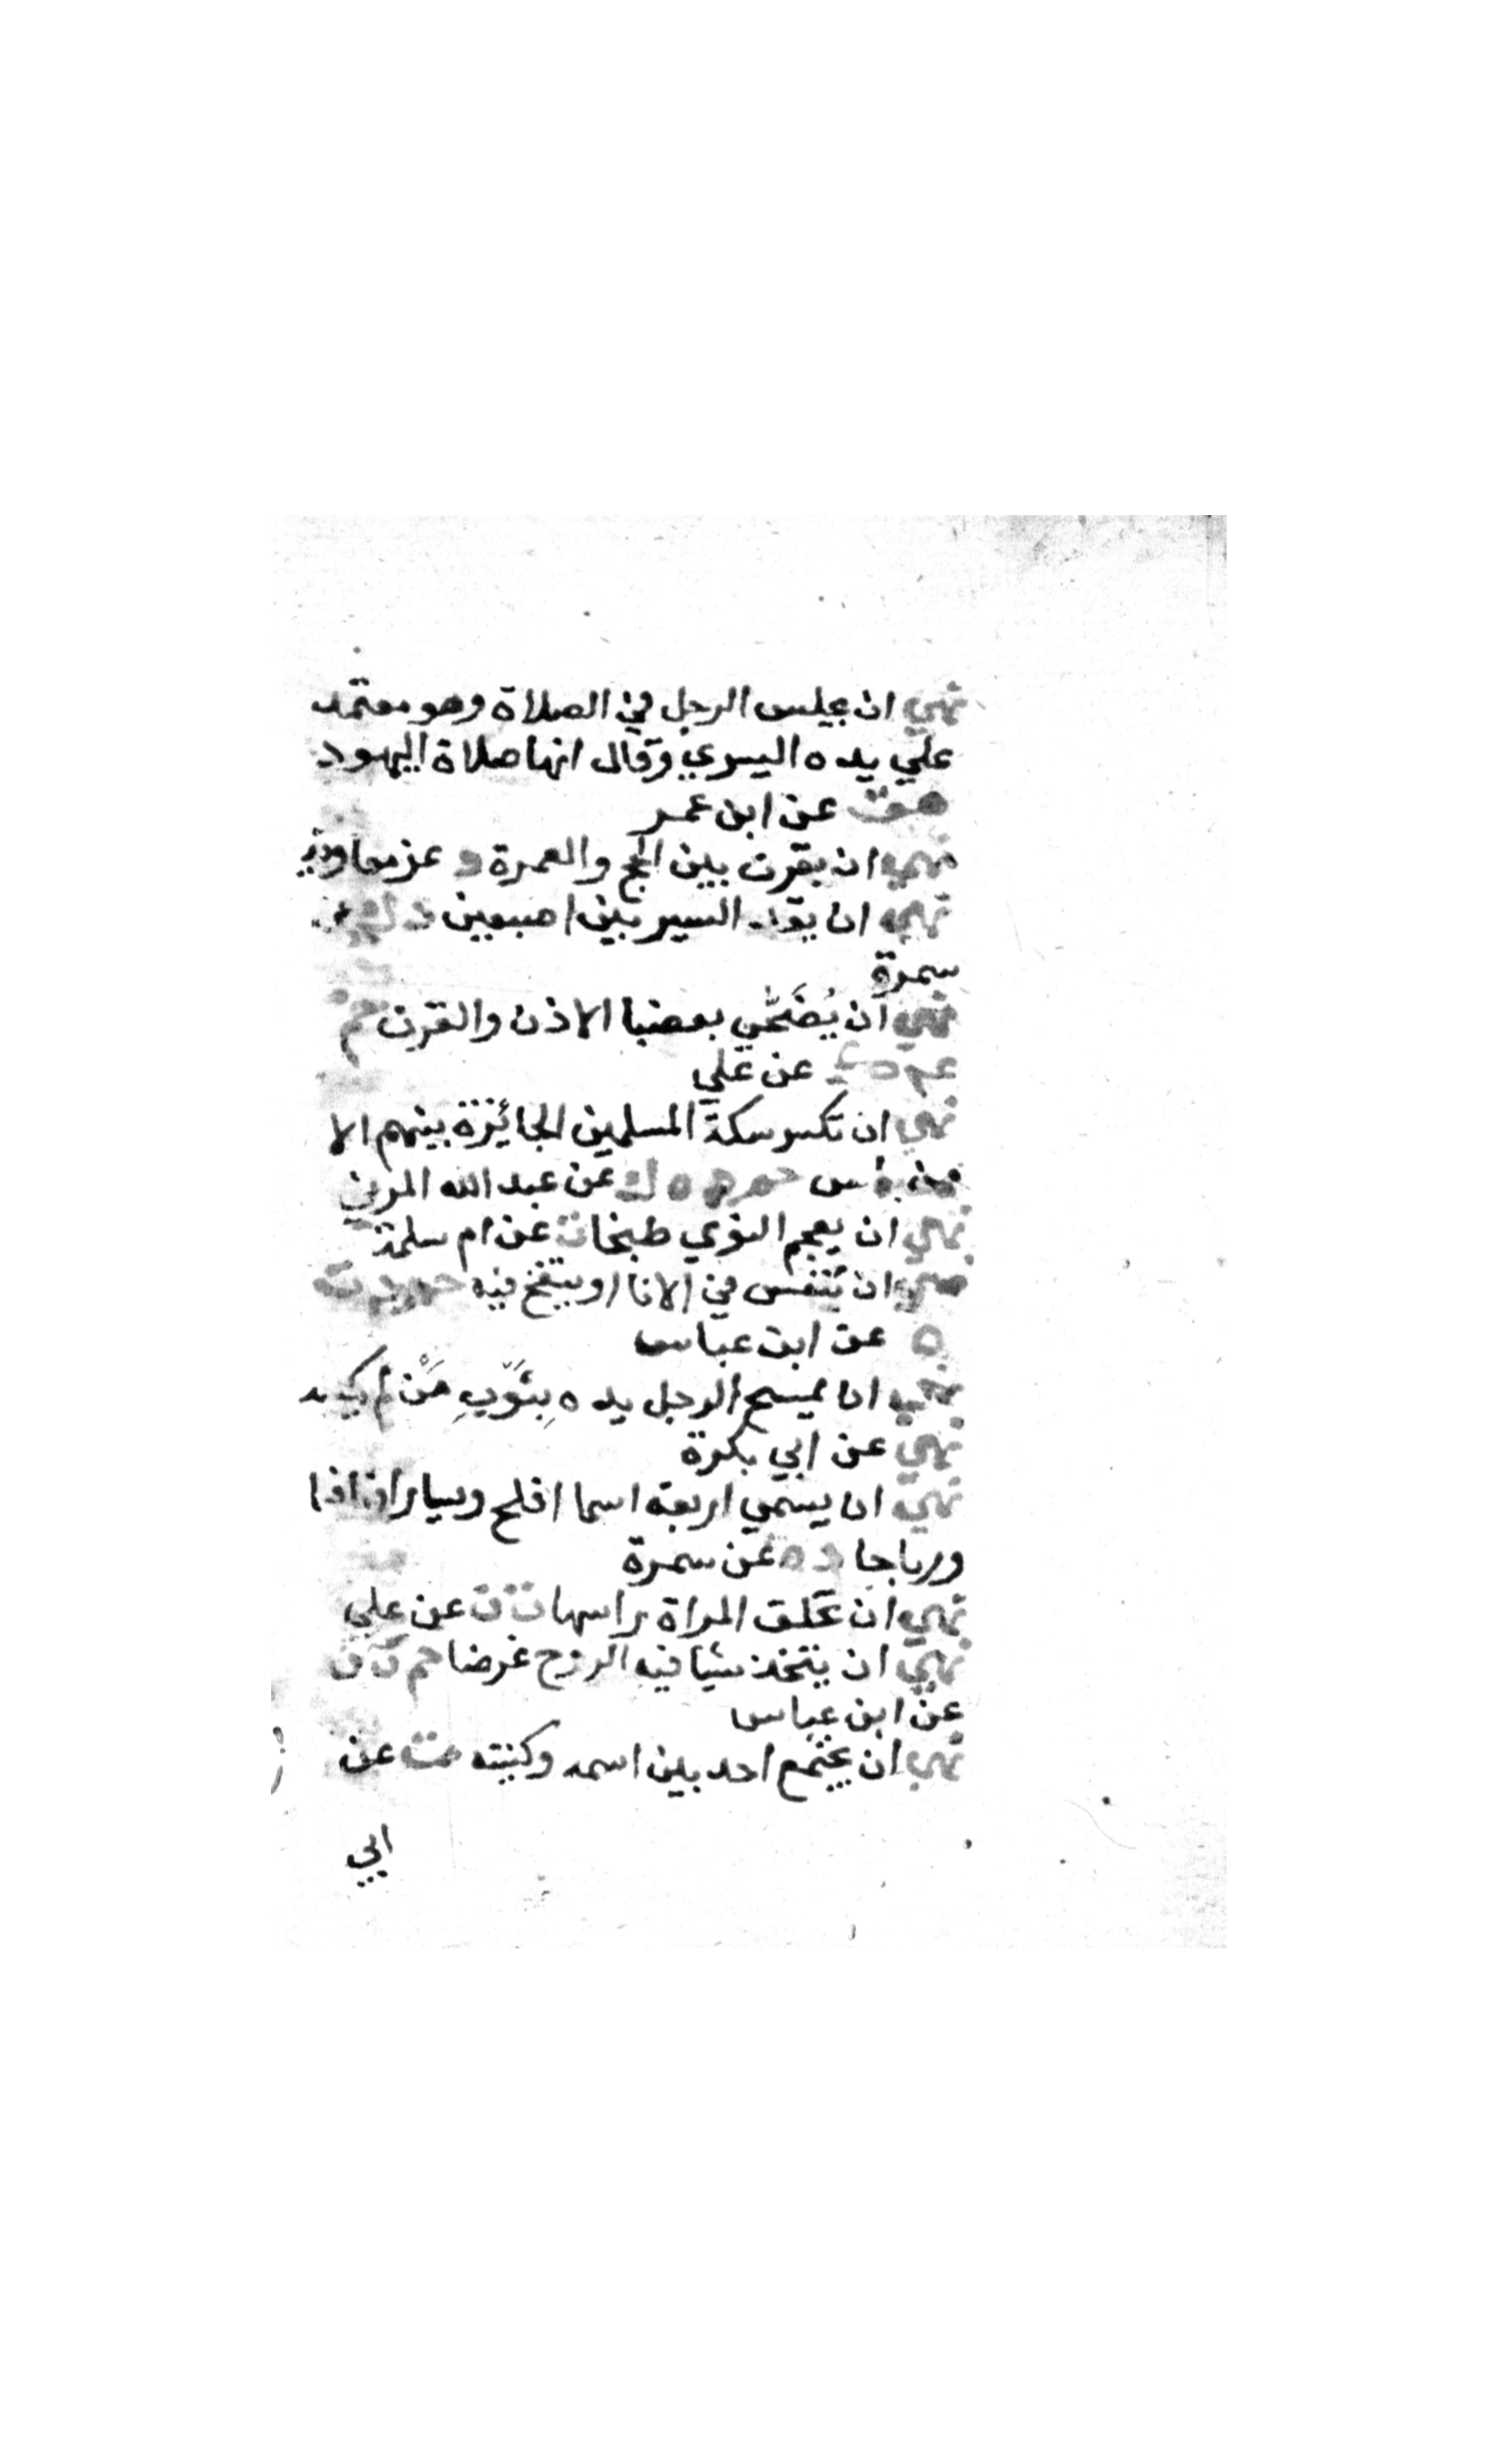 نهي ان يجلس الرجل في الصلاة وهو معتمد
علي يده اليسري وقال انها صلاة اليهود
هق عن ابن عمر
نهي ان يقرن بين الحج والعمرة د عن معاوية
نهي ان يقد السير بين اصبعين د ك عن
سمرة
نهي ان يُضَحَّي بعضبا الاذن والقرن حم
عن علي
نهي ان تكسر سكة المسلمين الجائزة بينهم الا
من باس حم د ه ك عن عبد الله المزني
نهي ان يعجم النوي طبخا عن ام سلمة
نهي ان يُتنفس في الانا او ينفخ فيه حم د ت
ه عن ابن عباس
نهي ان يمسح الرجل يده بِثَوْبِ مَنْ لم يكسه
عن ابي بكرة
نهي ان يسمي اربعة اسما افلح ويسارا ونافعا
ورباحا د ه عن سمرة
نهي ان تحلق المراة راسها ت ن عن علي
نهي ان يتخذ شيا فيه الروح غرضا حم ت ن
عن ابن عباس
نهي ان يجتمع احد بين اسمه وكنيته ت عن
ابي